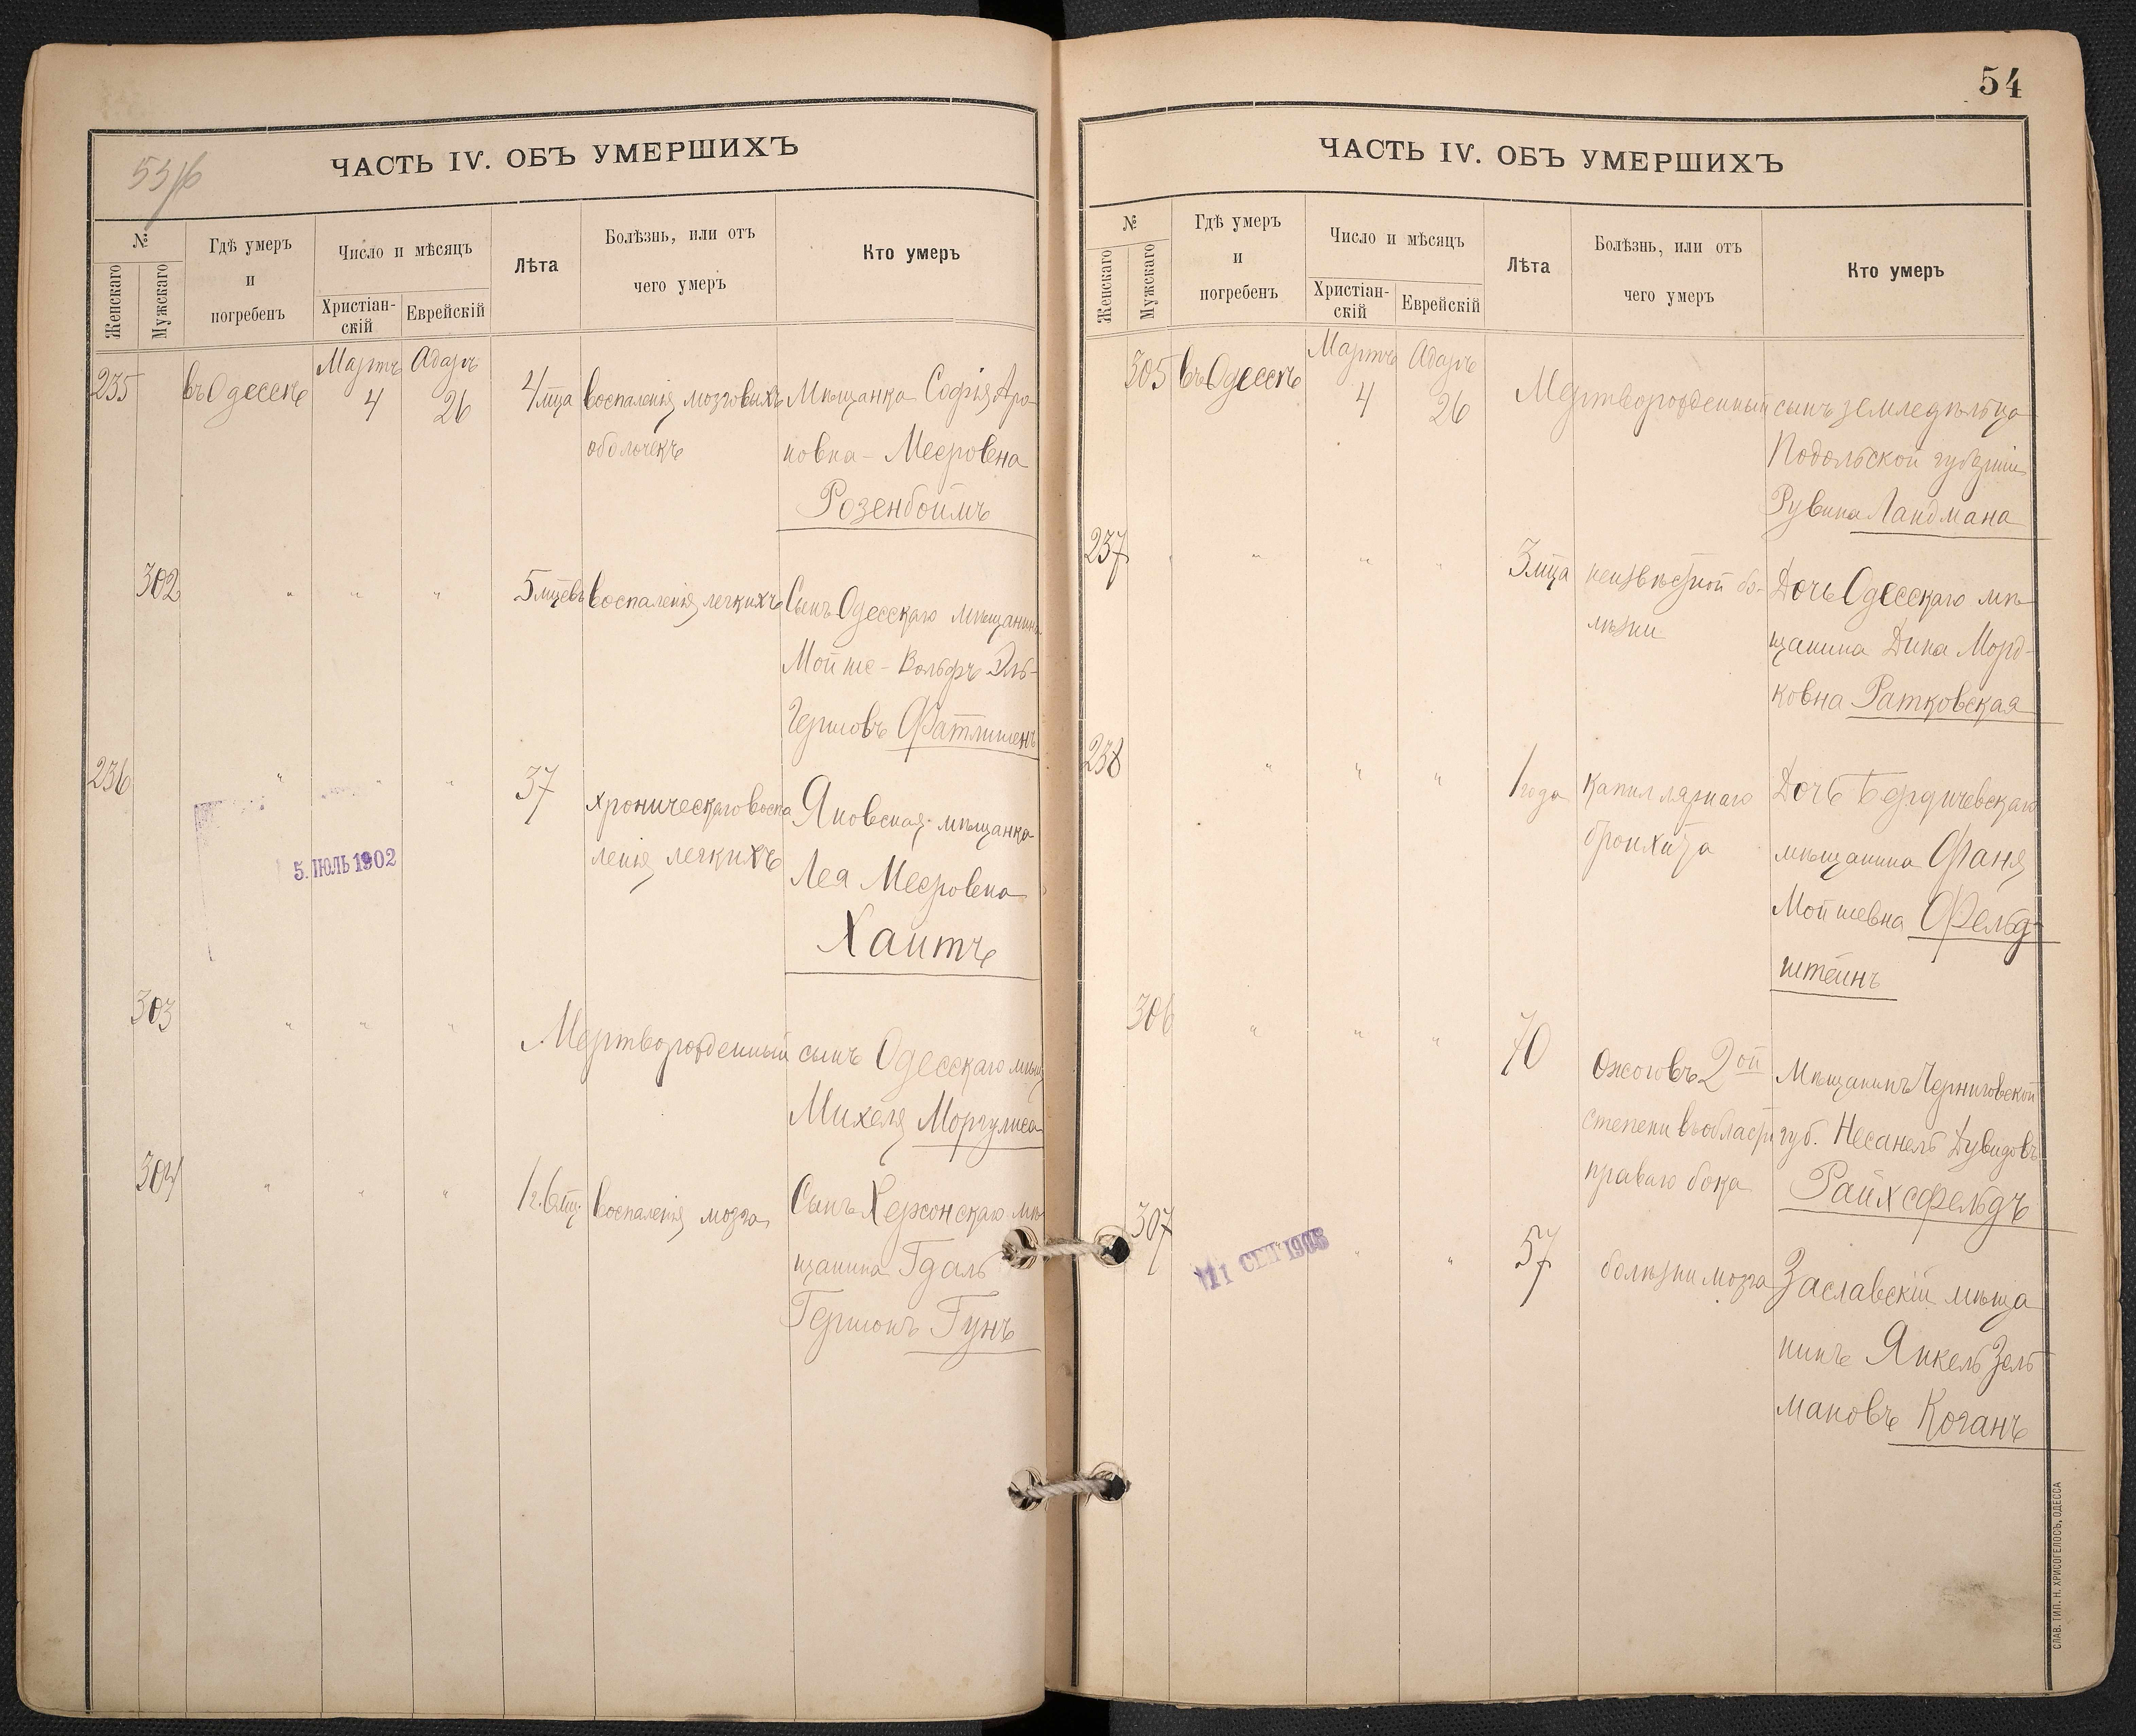 53/б
ЧАСТЬ IV. ОБЪ УМЕРШИХЪ
№
Женскаго
Мужскаго
Гдѣ умеръ
и
погребенъ
Число и мѣсяцъ
Христіан-
скій
Еврейскій
Лѣта
Болѣзнь, или отъ
чего умеръ
Кто умеръ
235 въ Одессѣ Мартъ 4 Адаръ 26 4 мца воспаленія мозговыхъ Мѣщанка Софія Аро-
оболочекъ новна-Меэровна
Розенбоймъ
302 " " " 5 мцевъ воспаленія легкихъ Сынъ Одесскаго мѣщанина
Мойше-Вольфъ Эль-
Гершовъ
236 " " " 37 хроническаго воспа Яновская мѣщанка
ленія легкихъ Лея Меэровна
Хаитъ
5. ІЮЛЬ 1902
303 " " " Мертворожденный сынъ Одесскаго мѣщ
Михеля Моргулиса
304 " " " 1 г. 6 мц. воспаленія мозга Сынъ Херсонскаго мѣ
щанина Гдаль
Гершонъ Гунъ
54
ЧАСТЬ IV. ОБЪ УМЕРШИХЪ
№
Женскаго
Мужскаго
Гдѣ умеръ
и
погребенъ
Число и мѣсяцъ
Христіан-
скій
Еврейскій
Лѣта
Болѣзнь, или отъ
чего умеръ
Кто умеръ
305 въ Одессѣ Мартъ 4 Адаръ 26 Мертворожденный сынъ земледѣльца
Подольской губерніи
Рувина Ландмана
237 " " " " 3 мца неизвѣстной бо- Дочь Одесскаго мѣ
лѣзни щанина Дина Морд-
ковна Ратковская
238 " " " 1 года капиллярнаго Дочь Бердичевскаго
бронхита мѣщанина Фаня
Мойшевна Фельд-
штейнъ
306 " " " 70 ожоговъ 2ой Мѣщанинъ Черниговской
степени въ области губ. Несанель Дувидовъ
праваго бока Райхсфельдъ
307 " " 57 болѣзни мозга Заславскій мѣща
нинъ Янкель Зель
мановъ Коганъ
11 СЕН
СЛАВ. ТИП. Н. ХРИСОГЕЛОСЪ, ОДЕССА